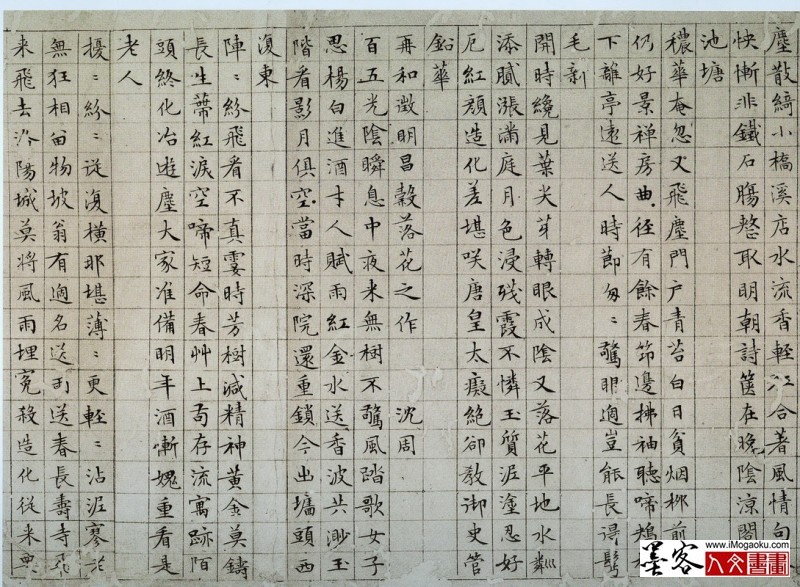 塵散綺小橋溪店水流香輕紅合著風情句
慚非鐵石腸取明朝詩篋在晚陰涼閣
池塘
穠華庵忽又飛塵門戶青苔白日貧烟柳前
仍好景禅房曲徑有餘春笻邊拂袖聽啼鴂
下離亭遠送人時節匆〻驚眼過豈能長得鬢
毛新
開時纔見葉尖芽轉眼成陰又落花平地水粼
添膩漲滿庭月色浸殘霞不憐玉質泥塗忍好
厄紅顏造化差堪咲唐皇太癡絕卻教御史管
鉛華
再和徵明昌穀落花之作 沈周
百五光陰瞬息中夜來無樹不驚風踏歌女子
思楊白進酒才人賦雨紅金水送香波共渺玉
階看影月俱空當時深院還重鎖今出墻頭西
復東
陣〻紛飛看不真霎時芳樹減精神黃金莫鑄
長生蒂紅淚空啼短命春艸上苟存流寓跡陌
頭終化冶遊塵大家准備明年酒慚媿重看是
老人
擾〻紛〻從復橫那堪薄〻更輕〻沾泥寥於
無狂相留物坡翁有過名送雨送春長壽寺飛
来飛去洛陽城莫將風雨埋冤殺造化從来
墨客人文書畫
www.iMogaoku.com